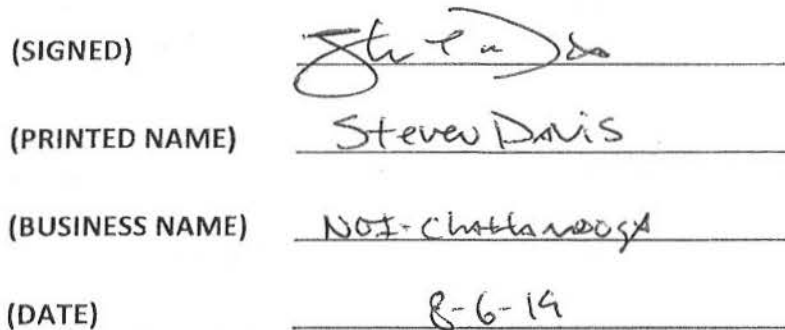 (SIGNED)
(PRINTED NAME) Steven Davis
(BUSINESS NAME) NOI-Chattanooga
(DATE) 8-6-19